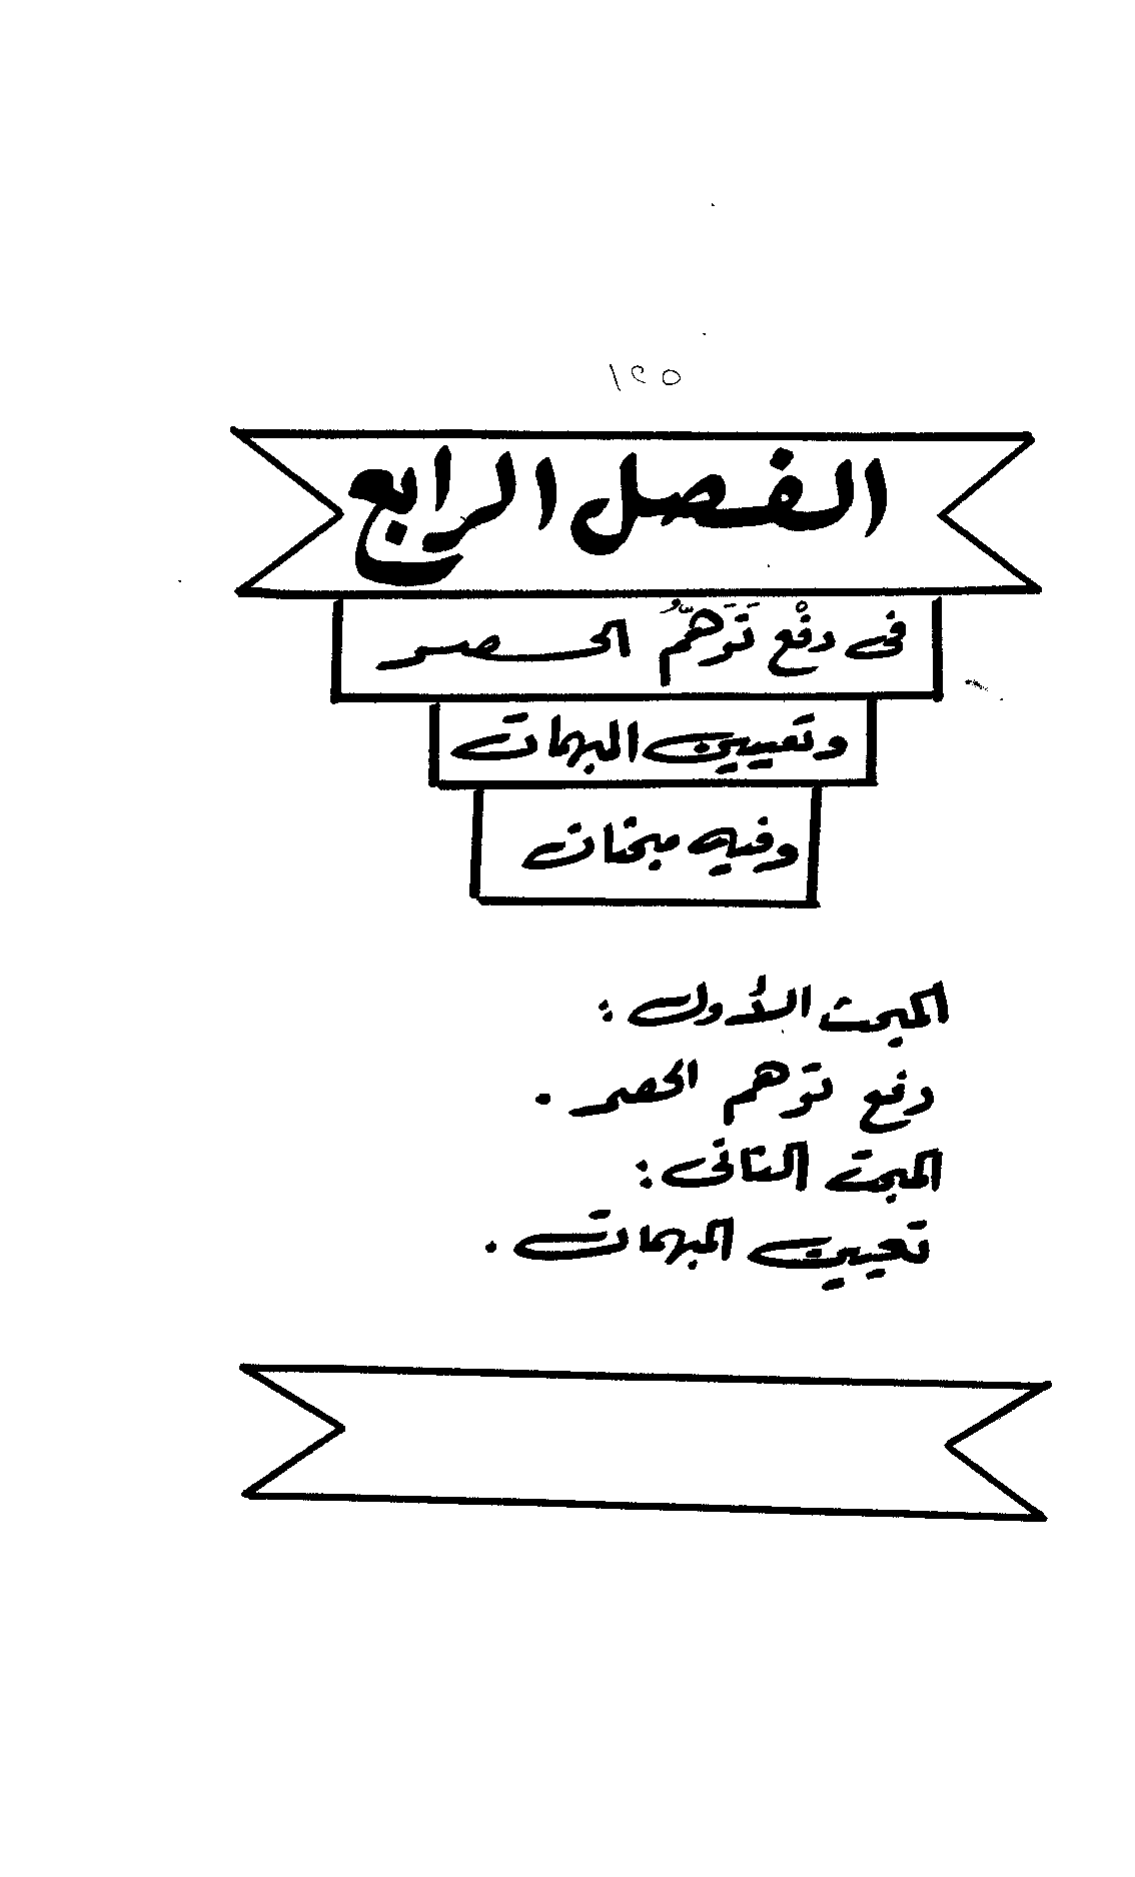 ١٢٥
الفصل الرابع
فى دفْع تَوَهّمُ الحصر
وتعيين المبهمات
وفيه مبحثان
المبحث الأول :
دفع توهم الحصر .
المبحث الثانى :
تعيين المبهمات .